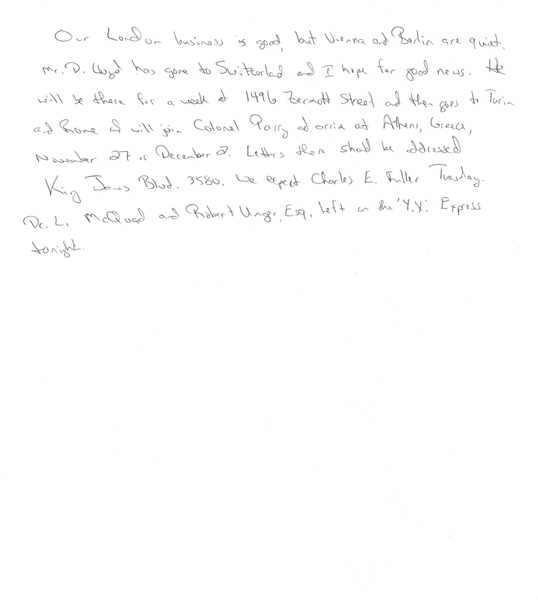 Our London business is good, but Vienna and Berlin are quiet.
Mr. D. Lloyd has gone to Switzerland and I hope for good news. He
will be there for a week at 1496 Zermott Street and then goes to Turin
and Rome and will join Colonel Parry and arrive at Athens, Greece,
November 27 or December 2. Letters there should be addressed
King James Blvd. 3580. We expect Charles E. Fuller Tuesday.
Dr. L. McQuad and Robert Unger, Esq. left on the 'Y.Y.' Express
tonight.